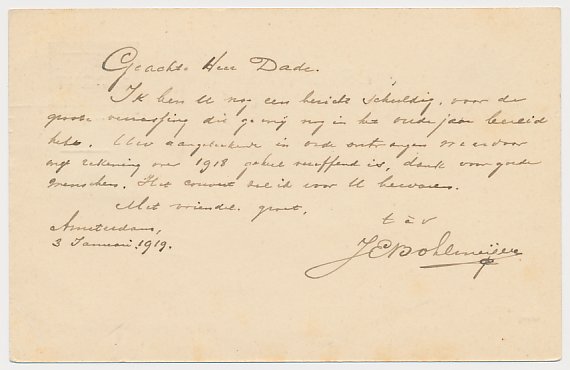 Geachte Heer Dade.
Ik ben U nog een bericht schuldig, voor de
groote verrassing die gy mij nog in het oude jaar bereid
hebt. Uw aangeteekende in orde ontvangen waardoor
onze rekening over 1918 geheel vereffend is, dank voor goede
wenschen. Het couvert zal ik voor U bewaren.
Met vriendel. groet,
t à v
Amsterdam,
3 Januari 1919.
J E Bohlmeijer